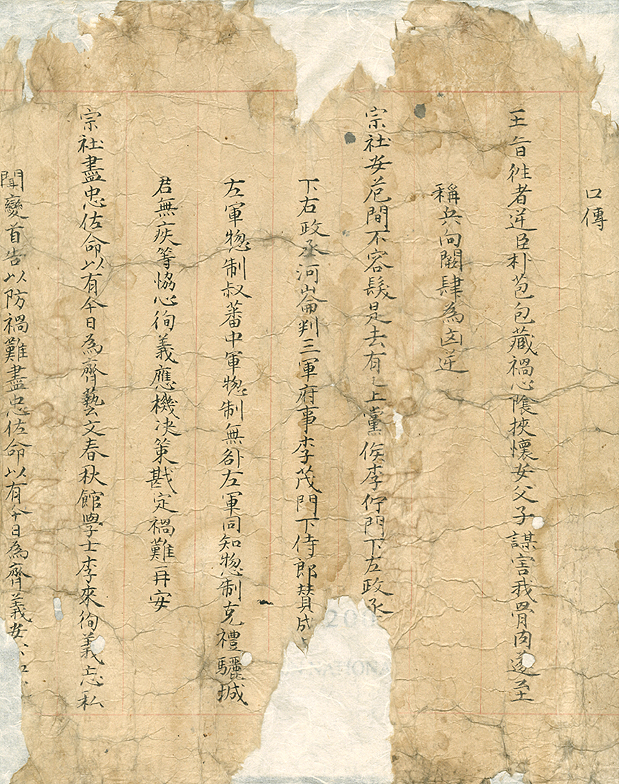 口傳
王旨徃者逆臣朴苞包藏禍心陰挾懷安父子謀害我骨肉遂至
稱兵向闕肆爲凶逆
宗社安危間不容髮是去有乙上黨侯李佇門下左政丞
下右政丞河崙判三軍府事李茂門下侍郎賛成
左軍摠制叔蕃中軍摠制無咎左軍同知摠制克禮驪城
君無疾等恊心徇義應機决策戡定禍難再安
宗社盡忠佐命以有今日為齊藝文春秋館學士李來徇義忘私
聞變首告以防禍難盡忠佐命以有今日為齊義安